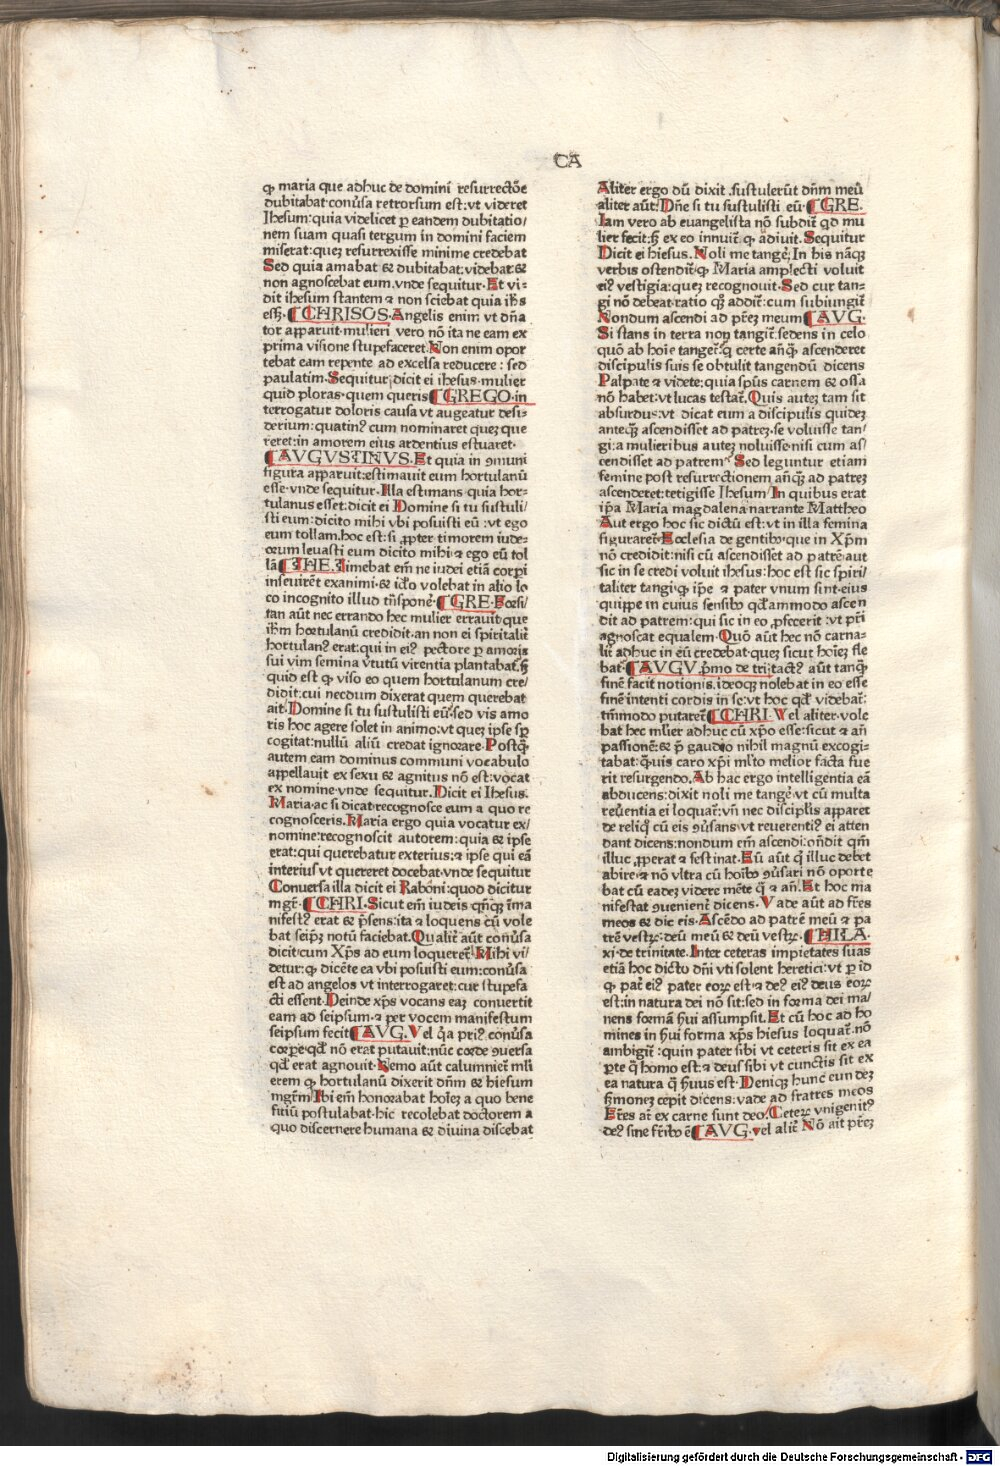 CA
ꝙ maria que adhuc de domini resurrectõe
dubitabat·conũsa retrorsum est:vt videret
Ihesum:quia videlicet ꝑ eandem dubitatio/
nem suam quasi tergum in domini faciem
miserat:quez resurrexisse minime credebat
Sed quia amabat &amp; dubitabat:videbat:&amp;
non agnoscebat eum.vnde sequitur. Et vi-
dit ihesum stantem &amp; non sciebat quia ih̃s
eſſ3. CHRISOS. Angelis enim vt dña
tor apparuit·mulieri vero nõ ita ne eam ex
prima visione stupefaceret. Non enim opor
tebat eam repente ad excelsa reducere: sed
paulatim. Sequitur;dicit ei ihesus·mulier
quid ploras·quem queris GREGO·in
terrogatur doloris causa vt augeatur desi-
derium:quatin9 cum nominaret quez que
reret:in amorem eius ardentius estuaret·
AVGVSTINVS. Et quia in 9muni
figura apparuit:estimauit eum hortulanũ
esse·vnde sequitur. Illa estimans quia hor-
tulanus esset:dicit ei Domine si tu sustuli/
sti eum:dicito mihi vbi posuisti eũ:vt ego
eum tollam.hoc est:si ꝓpter timorem iude-
orum leuasti eum dicito mihi &amp; ego eũ tol
lã THE. Timebat em̃ ne iudei etiã corpi
inseuirẽt exanimi·&amp; id̃o volebat in alio lo
co incognito illud tñsponẽ· GRE· Forsi/
tan aũt nec errando hec mulier errauit que
ihm̃ hortulanũ credidit·an non ei spiritalit̃
hortulan9 erat:qui in ei9 pectore ꝑ amoris
sui vim semina ṽtutũ virentia plantabat.S3
quid est ꝙ viso eo quem hortulanum cre/
didit:cui necdum dixerat quem querebat
ait. Domine si tu sustulisti eũ·sed vis amo
ris hoc agere solet in animo:vt quez ipse sp̃
cogitat:nullũ aliũ credat ignorare. Postq̃
autem eam dominus communi vocabulo
appellauit ex sexu &amp; agnitus nõ est:vocat
ex nomine·vnde sequitur. Dicit ei Ihesus.
Maria·ac si dicat·recognosce eum a quo re
cognosceris. Maria ergo quia vocatur ex/
nomine:recognoscit autorem:quia &amp; ipse
erat:qui querebatur exterius:&amp; ipse qui eã
interius vt quereret docebat·vnde sequitur
Conuersa illa dicit ei Raboni:quod dicitur
mg̃r. CHRI. Sicut em̃ iudeis qñq3 ĩma
nifest9 erat &amp; p̃sens:ita &amp; loquens cũ vole
bat seip̃3 notũ faciebat. Qualit̃ aũt conũsa
dicit:cum Xp̃s ad eum loqueret̃ Mihi vi/
detur:ꝙ dicẽte ea vbi posuisti eum:conũsa
est ad angelos vt interrogaret:cur stupefa
cti essent. Deinde xp̃s vocans eaz conuertit
eam ad seipsum·&amp; per vocem manifestum
seipsum fecit AVG. Vel q̃a pri9 conũsa
corpe·qd̃ nõ erat putauit:nũc corde 9uersa
qd̃ erat agnouit. Nemo aũt calumniet̃ mli
erem ꝙ hortulanũ dixerit dñm &amp; hiesum
mgr̃m Ibi em̃ honorabat hoĩez a quo bene
fitiũ postulabat·hic recolebat doctorem a
quo discernere humana &amp; diuina discebat
Aliter ergo dũ dixit·sustulerũt dñm meũ
aliter aũt: Dñe si tu sustulisti eũ· GRE.
Iam vero ab euangelista nõ subdit̃ qd mu
lier fecit:s3 ex eo innuit̃ ꝙ ãdiuit. Sequitur
Dicit ei hiesus. Noli me tangẽ; In his nãq3
verbis ostendit̃:ꝙ Maria amplecti voluit
ei9 vestigia:quez recognouit. Sed cur tan-
gi nõ debeat·ratio q3 addit̃:cum subiungit̃
Nondum ascendi ad pr̃ez meum AVG.
Si stans in terra non tangit̃·sedens in celo
quõ ab hoĩe tanget̃:q̃ certe añq̃ ascenderet
discipulis suis se obtulit tangendũ dicens
Palpate &amp; videte:quia sp̃us carnem &amp; ossa
nõ habet:vt lucas testat̃. Quis autez tam sit
absurdus:vt dicat eum a discipulis quidez
anteq̃3 ascendisset ad patrez·se voluisse tan/
gi:a mulieribus autez noluisse·nisi cum as/
cendisset ad patrem. Sed leguntur etiam
femine post resurrectionem añq̃3 ad patrez
ascenderet:tetigisse Ihesum/ In quibus erat
ip̃a Maria magdalena·narrante Mattheo
Aut ergo hoc sic dictũ est:vt in illa femina
figuraret̃ Ecclesia de gentib9·que in Xp̃m
nõ credidit:nisi cũ ascendisset ad patrẽ·aut
sic in se credi voluit ihesus:hoc est sic spiri/
taliter tangi·ꝙ ip̃e &amp; pater vnum sint·eius
quippe in cuius sensib9 qd̃ammodo ascen
dit ad patrem:qui sic in eo ꝓfecerit:vt pr̃i
agnoscat equalem. Quõ aũt hec nõ carna-
lit̃ adhuc in eũ credebat·quez sicut hoĩez fle
bat AVGV. p̃mo de tri;tact9 aũt tanq̃3
finẽ facit notionis,ideoq3 nolebat in eo esse
finẽ intenti cordis in se:vt hoc qd̃ videbat̃:
tm̃modo putaret̃ CHRI. Vel aliter·vole
bat hec mlier adhuc cũ xp̃o esse:sicut &amp; añ
passionẽ:&amp; p̃ gaudio nihil magnũ excogi-
tabat:q̃uis caro xp̃i ml̃to melior facta fue
rit resurgendo. Ab hac ergo intelligentia eã
abducens:dixit noli me tangẽ·vt cũ multa
reũentia ei loquat̃:vñ nec discipl̃is apparet
de reliq̃ cũ eis 9ũsans·vt reuerenti9 ei atten
dant dicens:nondum em̃ ascendi:oñdit qm̃
illuc ꝓperat &amp; festinat. Eũ aũt q̃ illuc debet
abire·&amp; nõ vltra cũ hoĩb9 9ũsari nõ oporte
bat cũ eadez videre mẽte q̃ &amp; añ. Et hoc ma
nifestat 9uenient̃ dicens. Vade aũt ad fr̃es
meos &amp; dic eis. Ascẽdo ad patrẽ meũ &amp; pa
trẽ vestrꝝ:deũ meũ &amp; deũ vestrꝝ. HILA.
xi·de trinitate. Inter ceteras impietates suas
etiã hoc dicto dñi vti solent heretici:vt ꝑ id
ꝙ pat̃ ei9 pater eorꝝ est·&amp; de9 ei9 deus eorꝝ
est:in natura dei nõ sit:sed in forma dei ma/
nens formã s̃ui assumpsit. Et cũ hoc ad ho
mines in s̃ui forma xp̃s hiesus loquat̃·nõ
ambigit̃:quin pater sibi vt ceteris sit ex ea
ꝑte q̃ homo est:&amp; deus sibi vt cunctis sit ex
ea natura q̃ s̃uus est. Deniq3 hunc eundez
s̃monez cepit dicens:vade ad fratres meos
Fr̃es at̃ ex carne sunt deo/ Ceterꝝ vnigenit9
de9 sine fr̃ib9 ẽ AVG. vel alit̃ Nõ ait pr̃ez
Digitalisierung gefördert durch die Deutsche Forschungsgemeinschaft - DFG